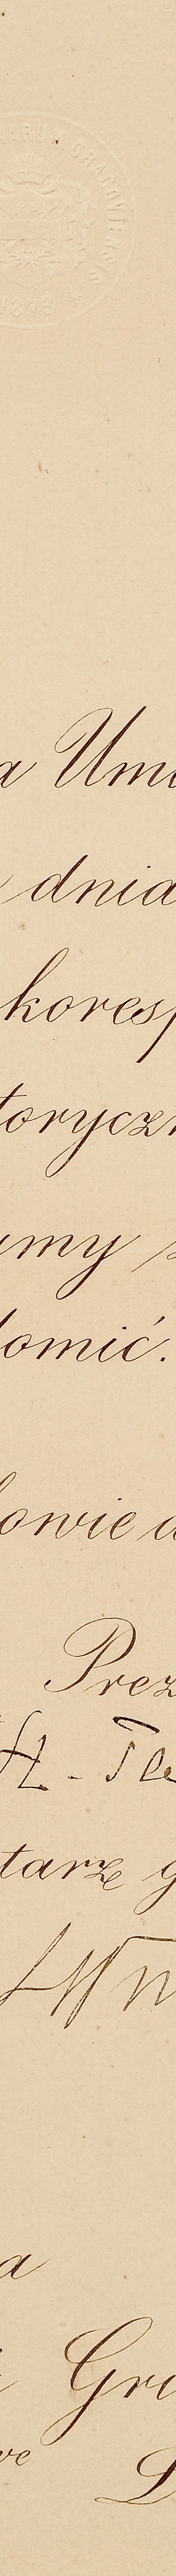 CRACOVIENSIS
1873
a Umi
dnia
koresp
toryczn
umy s
domić.
owie d
Prez
tarze g
a
Gro
we